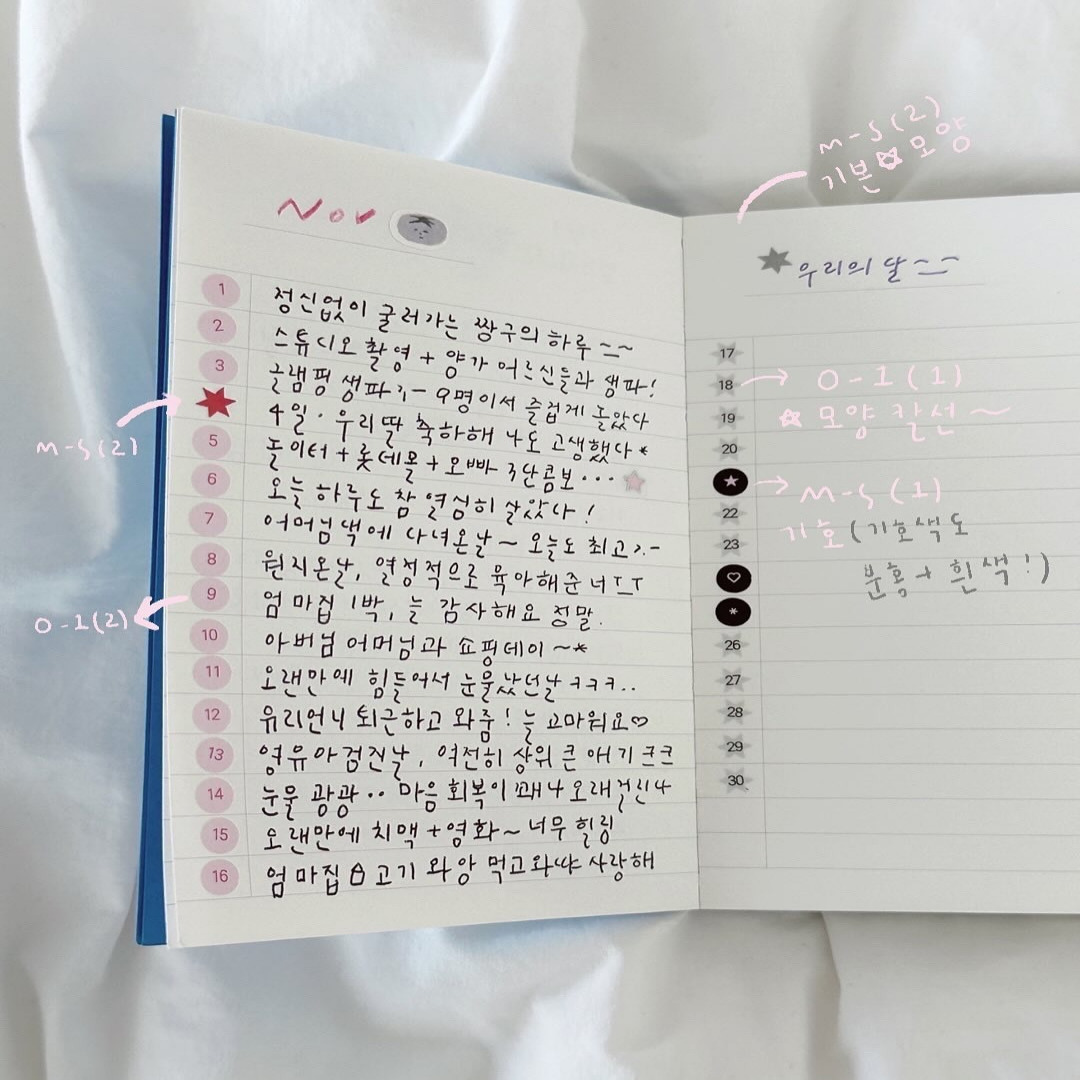 Nov
1 정신없이 굴러가는 짱구의 하루
2 스튜디오 촬영 + 양가 어르신들과 생파!
3 글램핑 생파 9명이서 즐겁게 놀았다
4일. 우리딸 축하해 나도 고생했다*
5 놀이터+롯데몰+오빠 3단콤보...
6 오늘 하루도 참 열심히 살았다!
7 어머님댁에 다녀온날~ 오늘도 최고
8 원지온날, 열정적으로 육아해준너ㅜㅜ
9 엄마집 1박, 늘 감사해요 정말.
10 아버님 어머님과 쇼핑데이~*
11 오랜만에 힘들어서 눈물났던날 ㅋㅋㅋ..
12 유리언니 퇴근하고 와줌! 늘 고마워요♡
13 영유아검진날, 여전히 상위 큰 애기 크크
14 눈물 광광.. 마음 회복이 꽤나 오래걸린나
15 오랜만에 치맥+영화~ 너무 힐링
16 엄마집 고기 와앙 먹고와따 사랑해
m-s(2)
0-1(2)
m-s(2)
기본☆모양
우리의 달
17
18 0-1(1)
19 ☆모양 칼선~
20
★ m-s(1)
22 기호(기호색도
23 분홍+흰색!)
♡
*
26
27
28
29
30